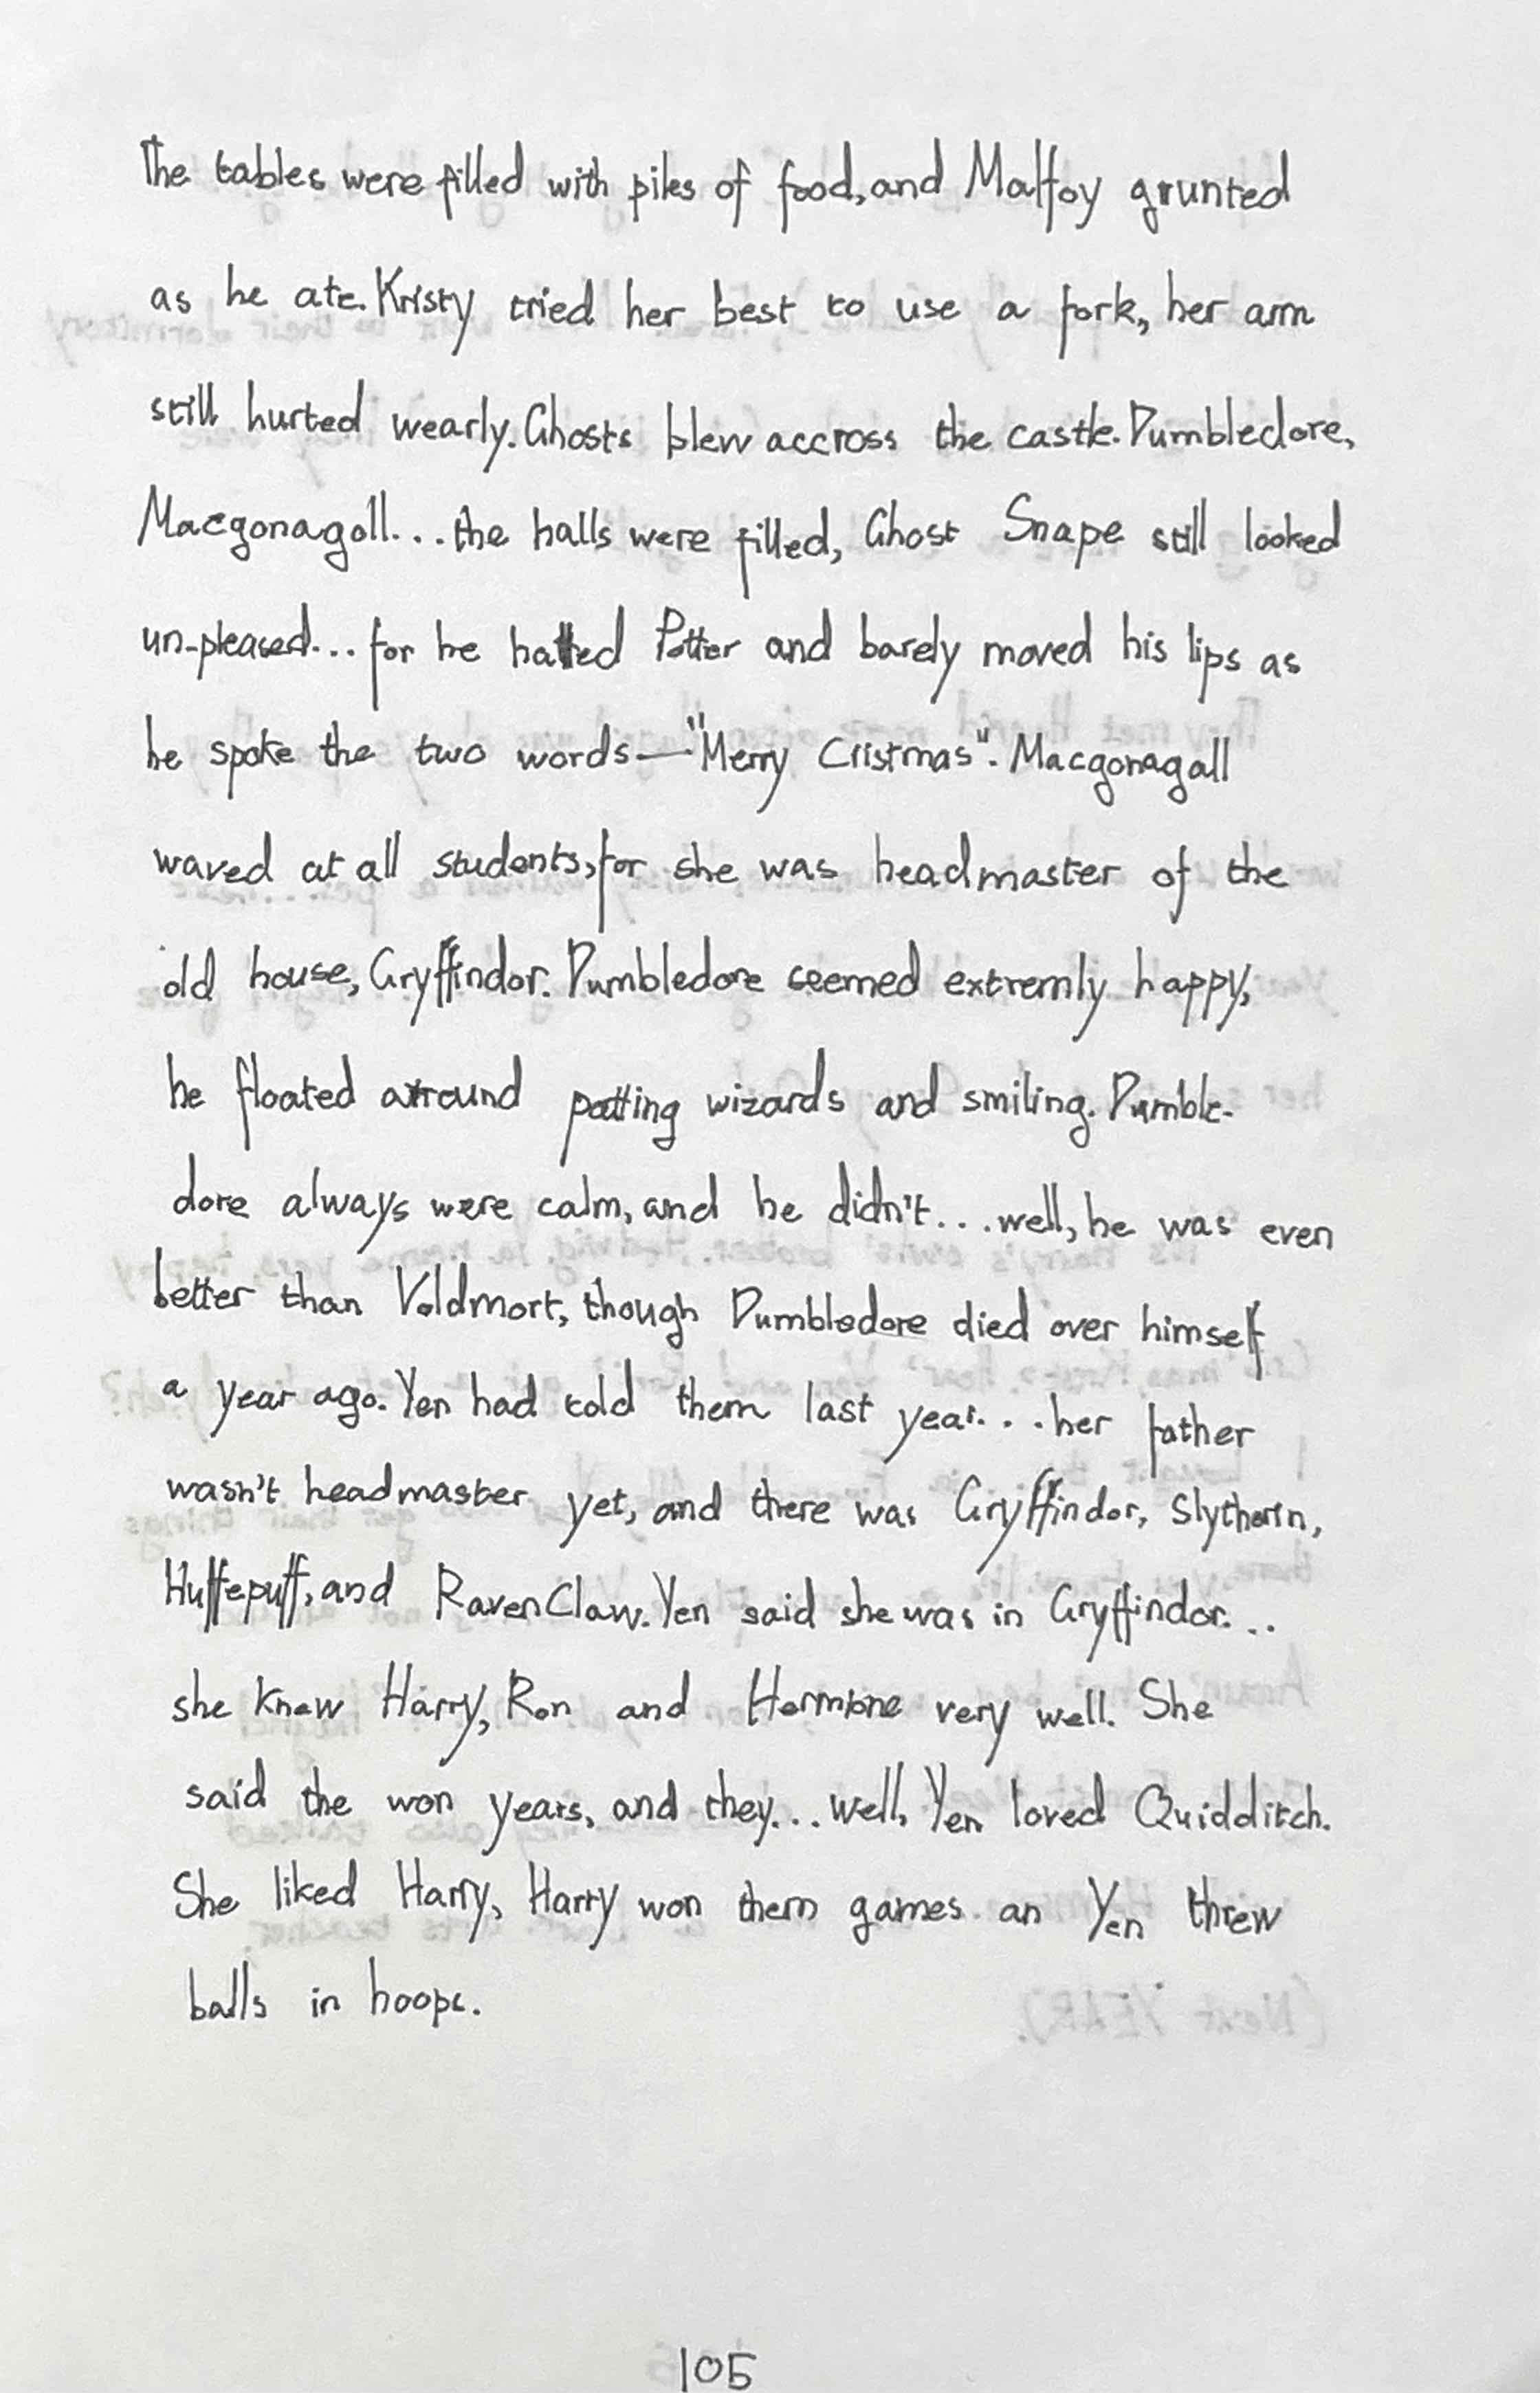 The tables were filled with piles of food, and Malfoy grunted
as he ate. Kristy tried her best to use a fork, her arm
still hurted wearly. Ghosts blew accross the castle. Dumbledore,
Macgonagoll... the halls were filled, Ghost Snape still looked
un-pleased... for he hatted Potter and barely moved his lips as
he spoke the two words—"Merry Cristmas". Macgonagall
waved at all students, for she was headmaster of the
old house, Gryffindor. Dumbledore seemed extremly happy,
he floated arround patting wizards and smiling. Dumble-
dore always were calm, and he didn't... well, he was even
better than Voldmort, though Dumbledore died over himself
a year ago. Yen had told them last year... her father
wasn't headmaster yet, and there was Gryffindor, Slytherin,
Huffepuff, and RavenClaw. Yen said she was in Gryffindor...
she knew Harry, Ron and Hermione very well. She
said the won years, and they... well, Yen loved Quidditch.
She liked Harry, Harry won them games an Yen threw
balls in hoops.
105